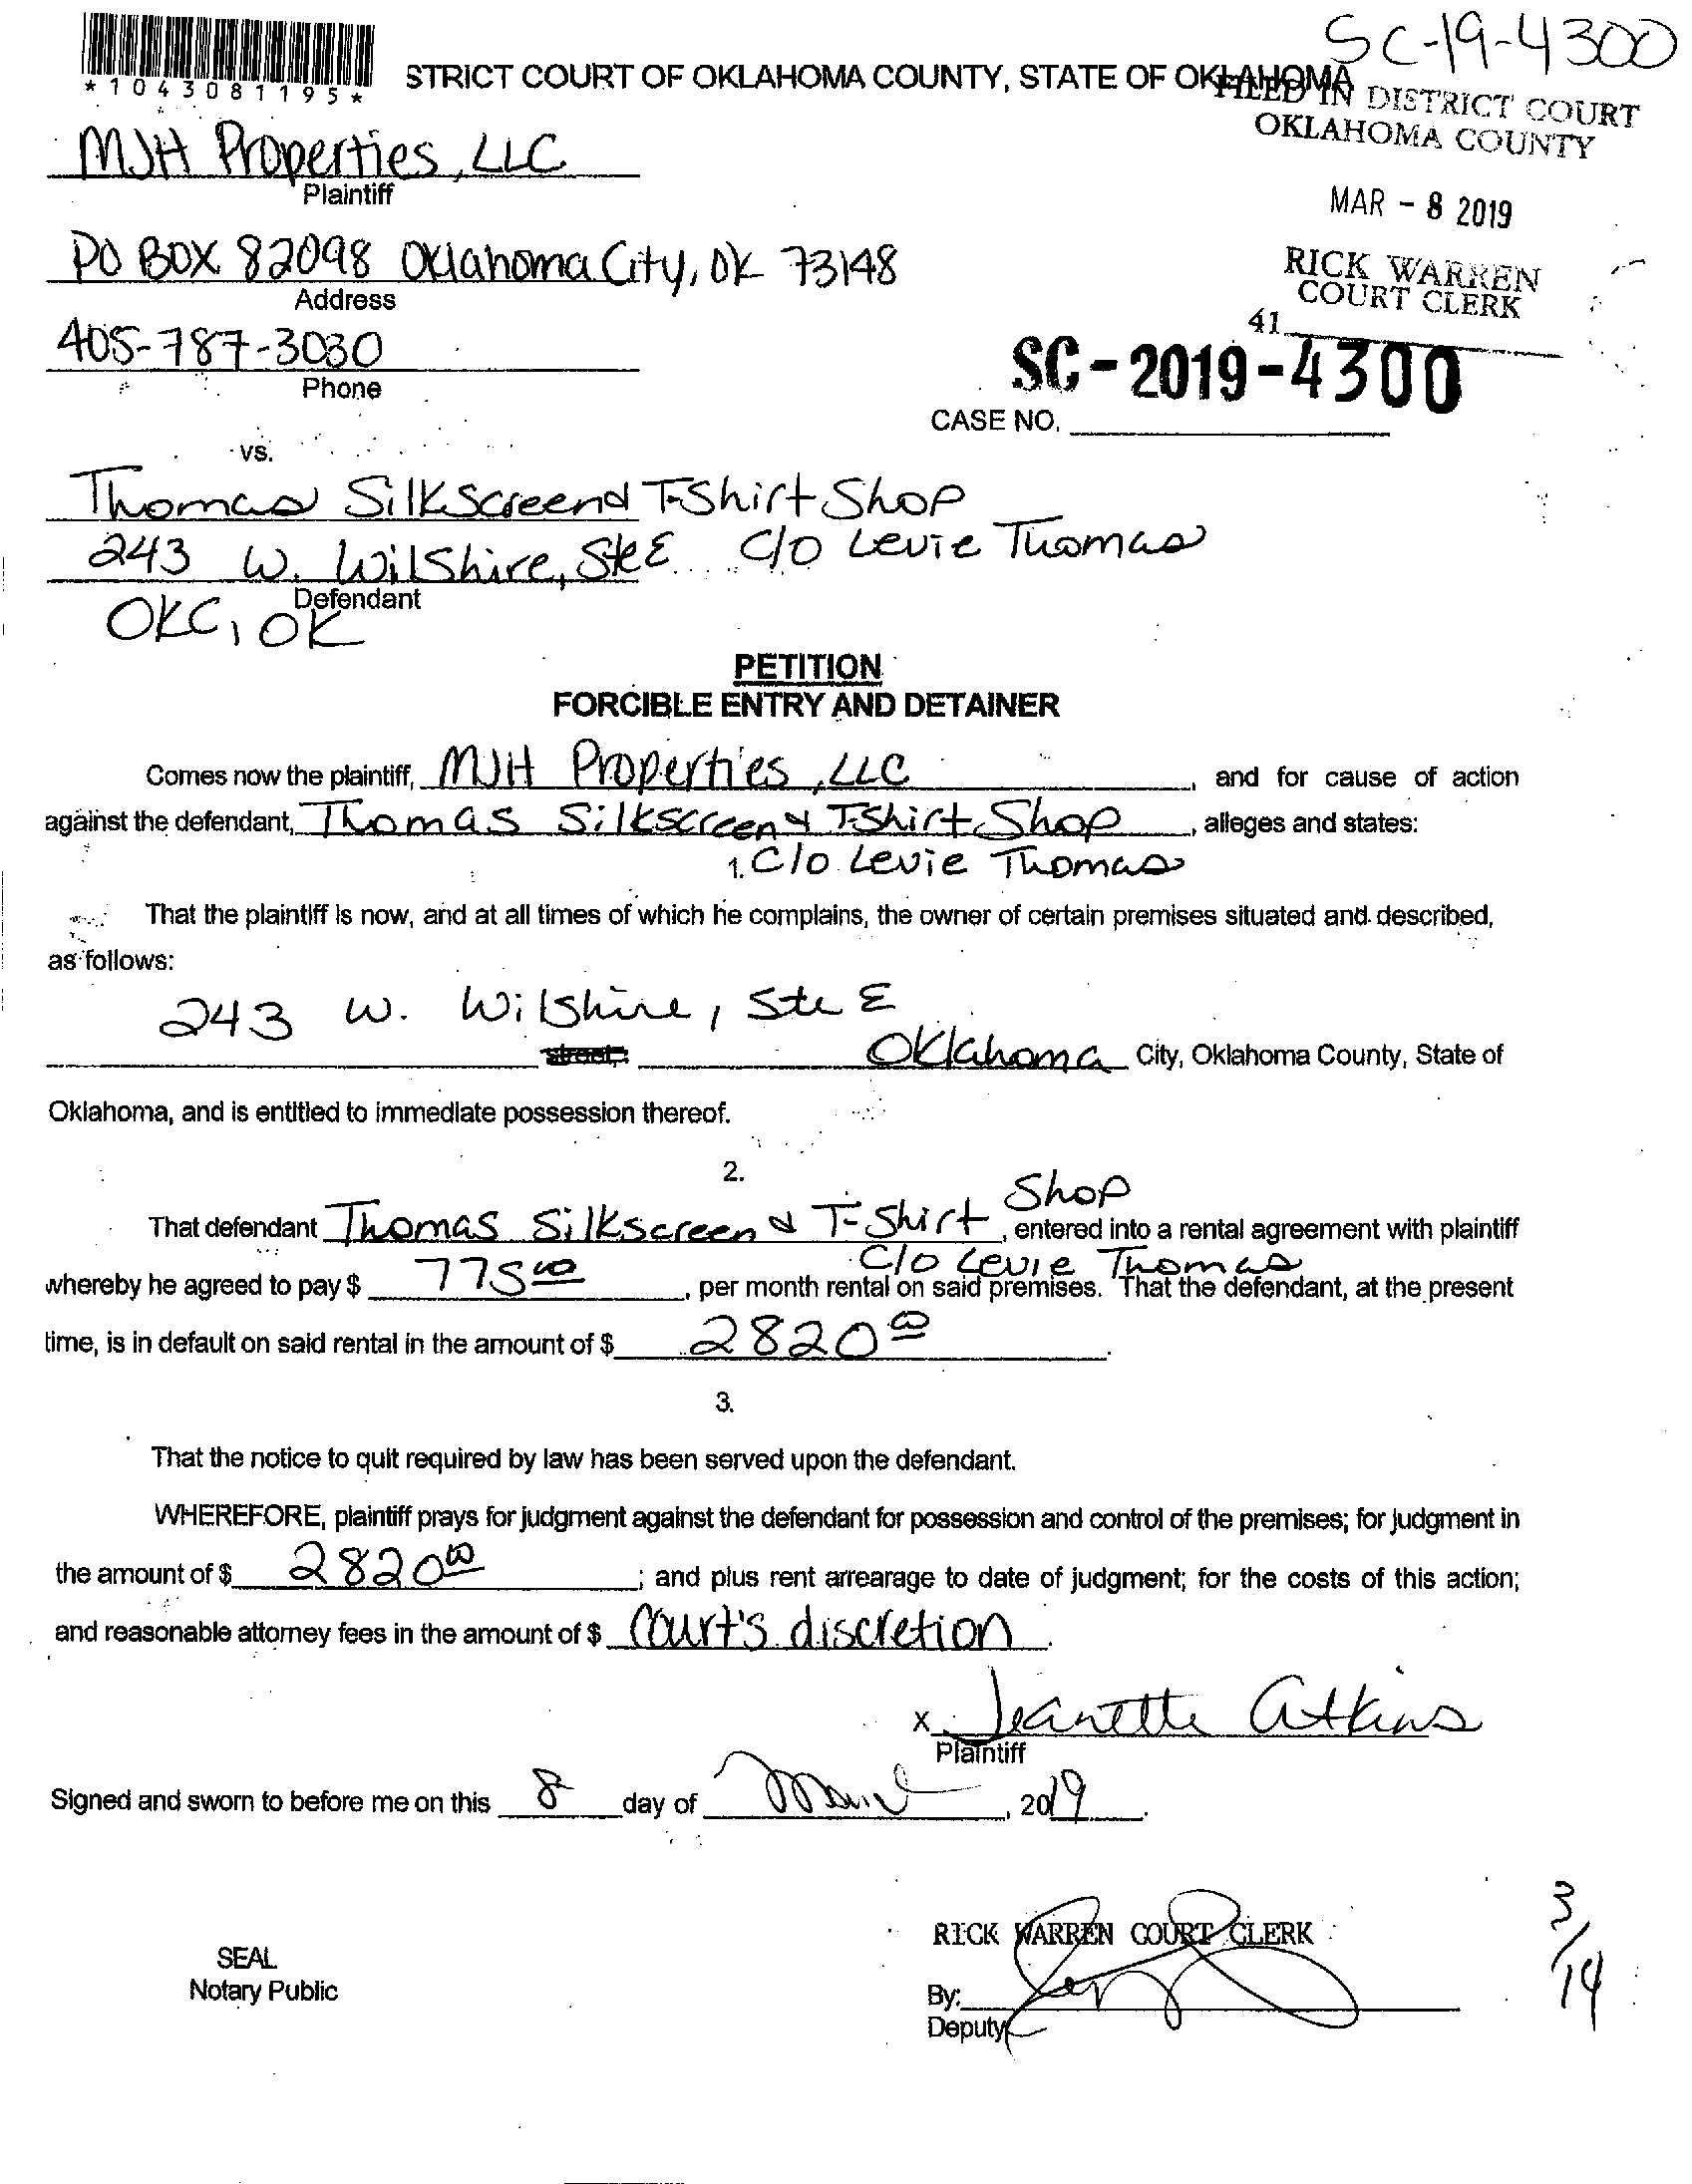 SC-19-4300
*1043081195*
STRICT COURT OF OKLAHOMA COUNTY, STATE OF OKLAHOMA
FILED IN DISTRICT COURT
OKLAHOMA COUNTY
MJH Properties, LLC
Plaintiff
MAR - 8 2019
PO BOX 82098 Oklahoma City, OK 73148
Address
RICK WARREN
COURT CLERK
41
405-787-3030
Phone
SC-2019-4300
CASE NO.
vs.
Thomas Silkscreen & T-Shirt Shop
243 W. Wilshire, Ste E c/o Levie Thomas
Defendant
OKC, OK
PETITION
FORCIBLE ENTRY AND DETAINER
Comes now the plaintiff, MJH Properties, LLC, and for cause of action
against the defendant, Thomas Silkscreen & T-Shirt Shop, alleges and states:
1. c/o Levie Thomas
That the plaintiff is now, and at all times of which he complains, the owner of certain premises situated and described,
as follows:
243 W. Wilshire, Ste E
street; Oklahoma City, Oklahoma County, State of
Oklahoma, and is entitled to immediate possession thereof.
2.
That defendant Thomas Silkscreen & T-Shirt Shop, entered into a rental agreement with plaintiff
c/o Levie Thomas
whereby he agreed to pay $ 775 00, per month rental on said premises. That the defendant, at the present
time, is in default on said rental in the amount of $ 2820 00.
3.
That the notice to quit required by law has been served upon the defendant.
WHEREFORE, plaintiff prays for judgment against the defendant for possession and control of the premises; for judgment in
the amount of $ 2820 00; and plus rent arrearage to date of judgment; for the costs of this action;
and reasonable attorney fees in the amount of $ Court's discretion.
x Jeanette Atkins
Plaintiff
Signed and sworn to before me on this 8 day of March, 2019.
RICK WARREN COURT CLERK
3/14
SEAL
Notary Public
By:
Deputy